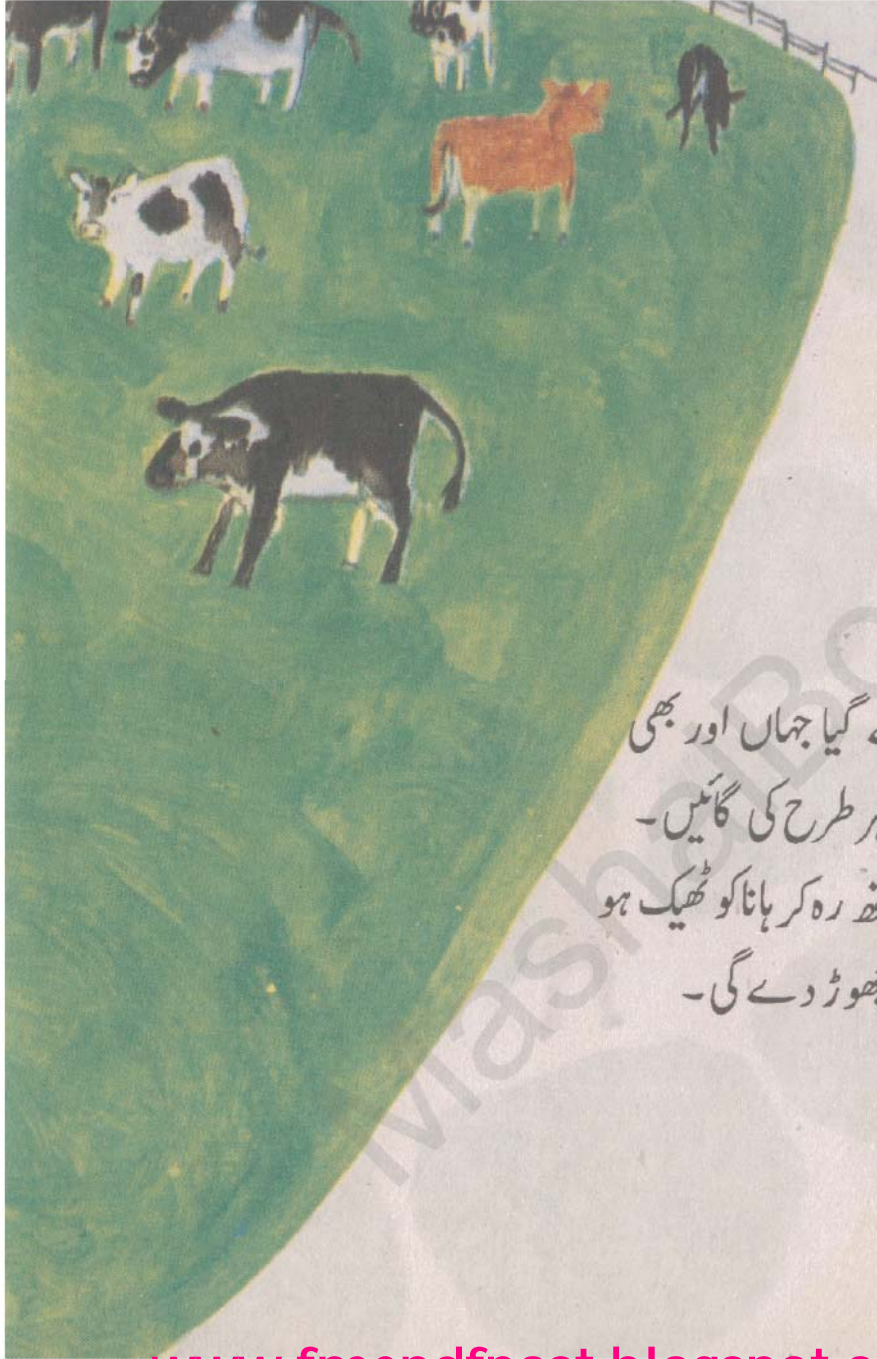 گیا جہاں اور بھی
طرح کی گائیں۔
رہ کر ہانا کو ٹھیک ہو
دے گی۔
MashalBo